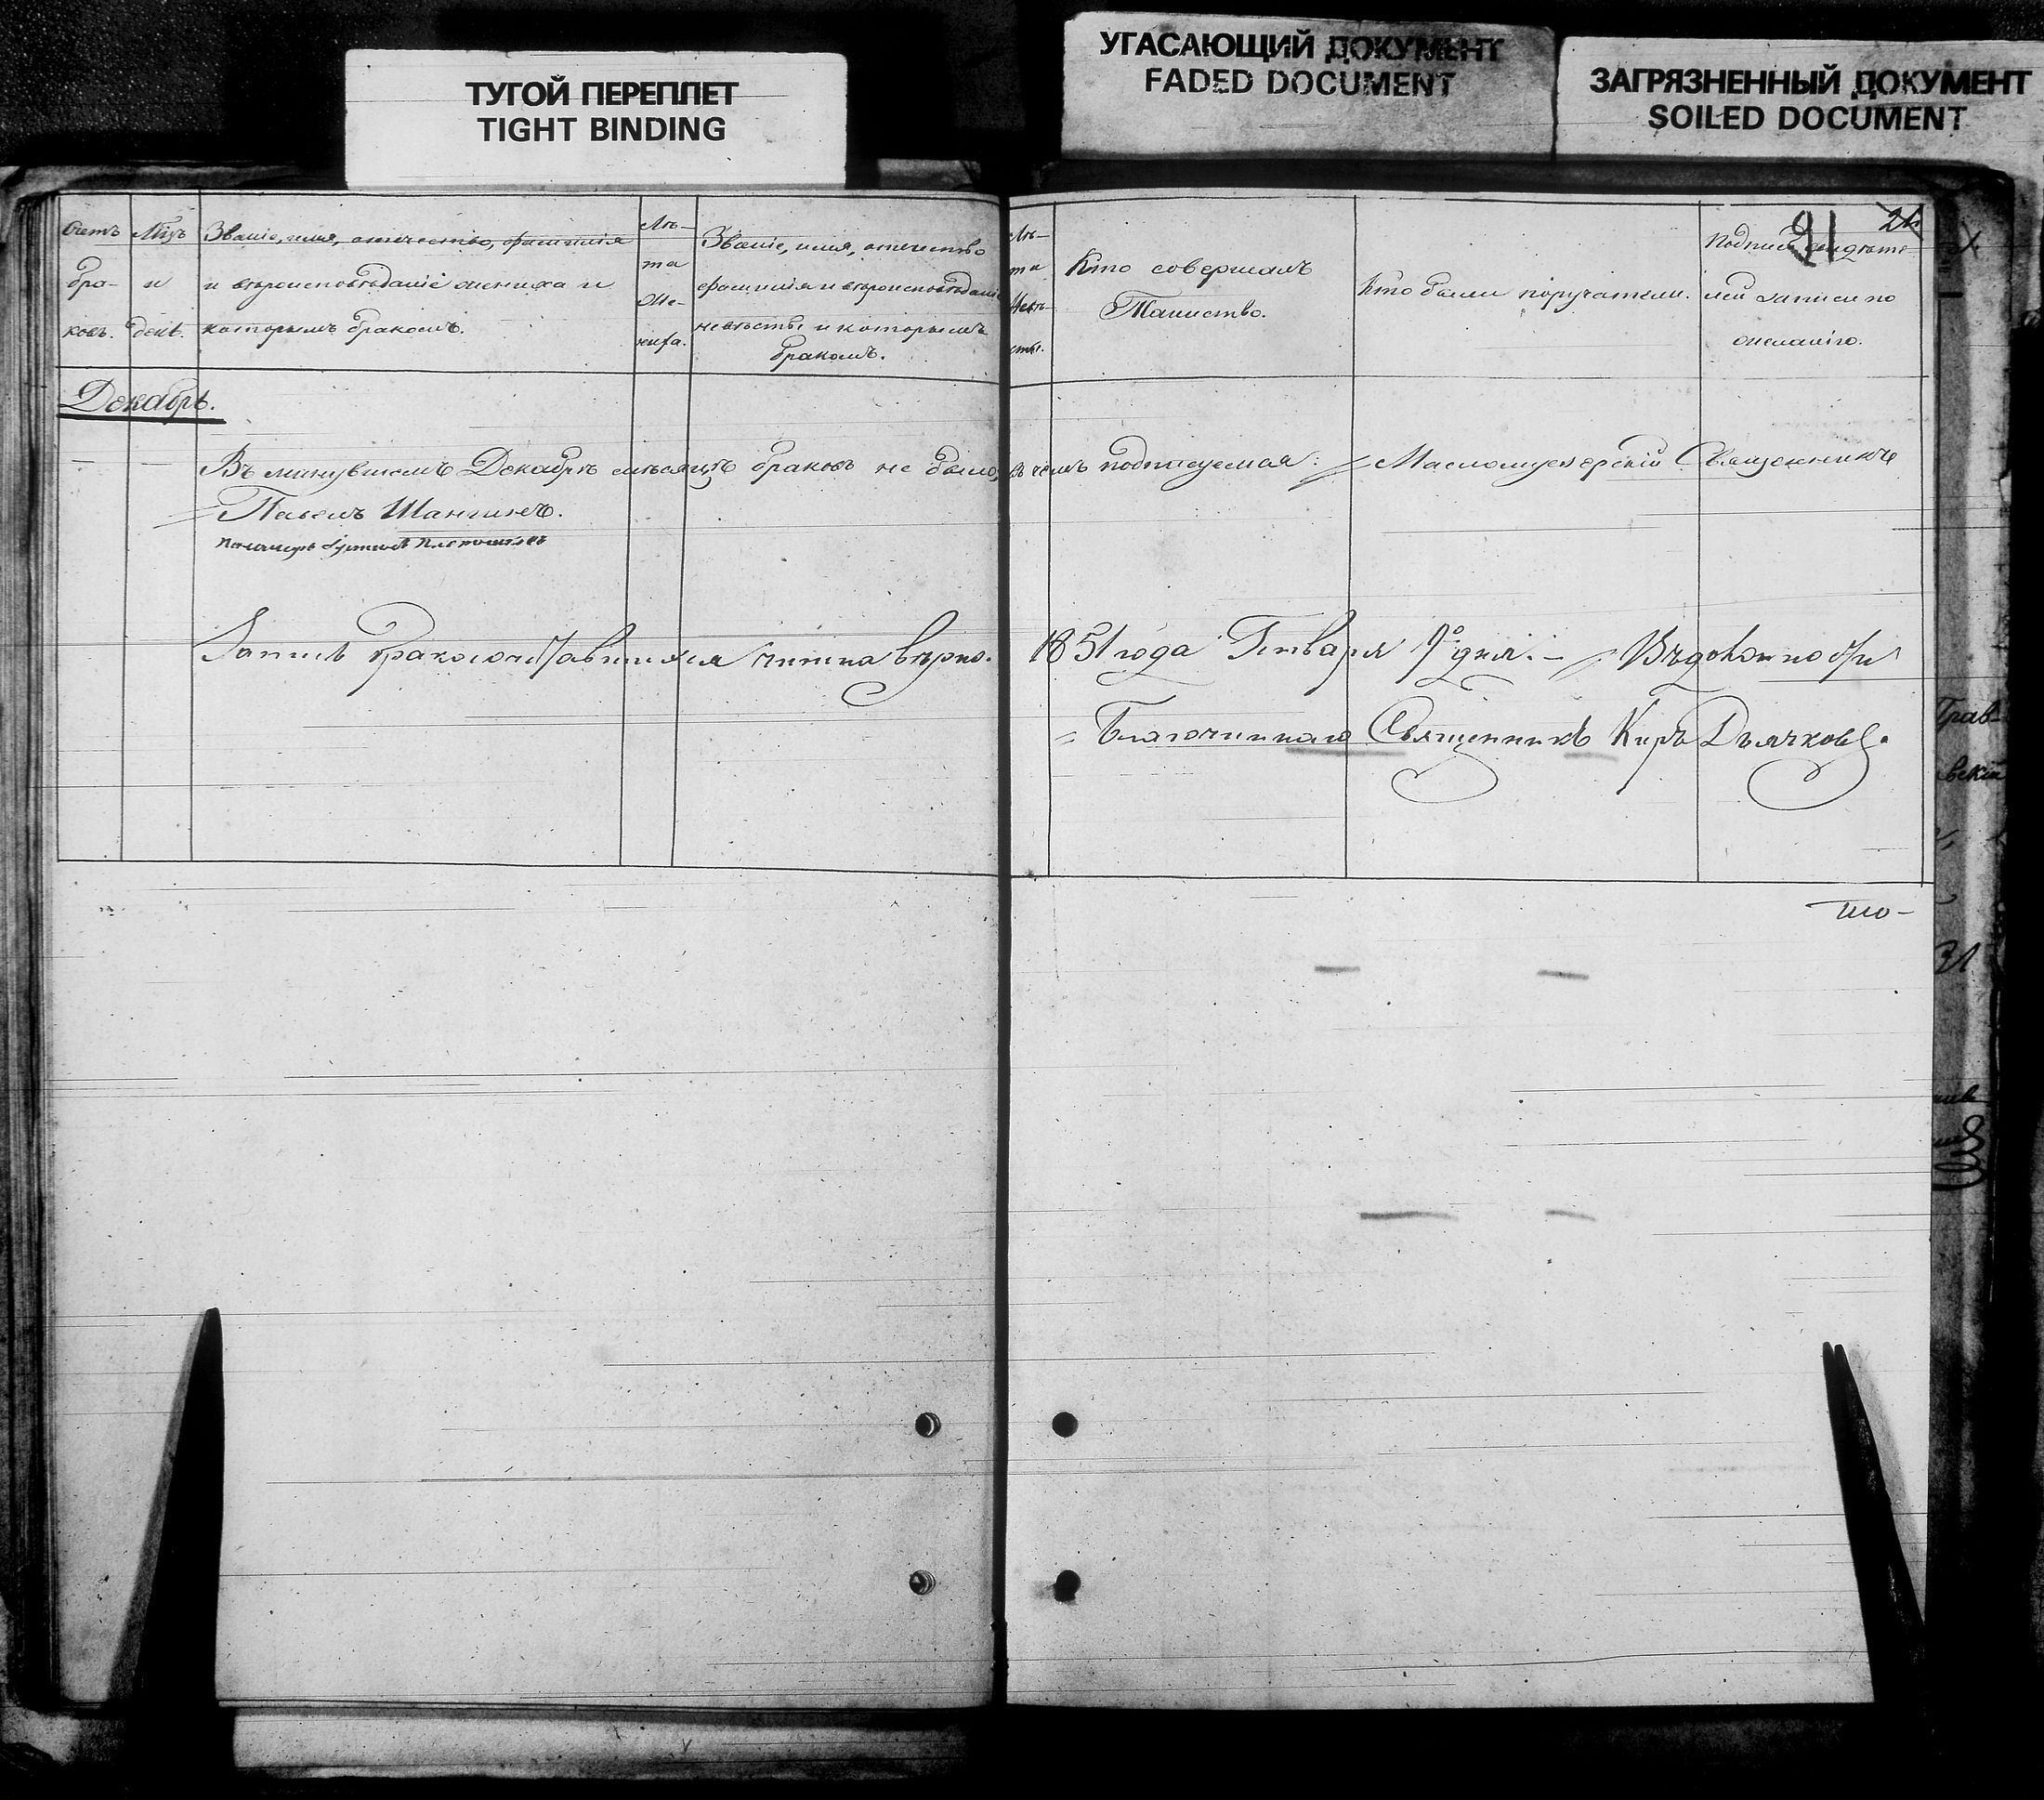 ТУГОЙ ПЕРЕПЛЕТ
TIGHT BINDING
УГАСАЮЩИЙ ДОКУМЕНТ
FADED DOCUMENT
ЗАГРЯЗНЕННЫЙ ДОКУМЕНТ
SOILED DOCUMENT
91
Счетъ бра-ковъ.
Мцъ и день.
Званіе, имя, отчество, фамилія
и вѣроисповѣданіе жениха и
которымъ бракомъ.
Лѣ-
та
Же-
ниха.
Званіе, имя, отчество
фамилія и вѣроисповѣданіе
невѣсты и которымъ
бракомъ.
Лѣ-
та
Невѣ-
сты.
Кто совершалъ
Таинство.
Кто были поручители.
Подписи свидѣте-
лей записи по
желанію.
Декабрь.
Въ минувшемъ Декабрѣ мѣсяцѣ браковъ не было, въ чемъ подписуемся: Священникъ
Павелъ Шангинъ.
Запись бракосочетавшихся читна вѣрно. 1851 года Генваря 9го дня.
Благочиннаго Священникъ Киръ Дьячковъ.